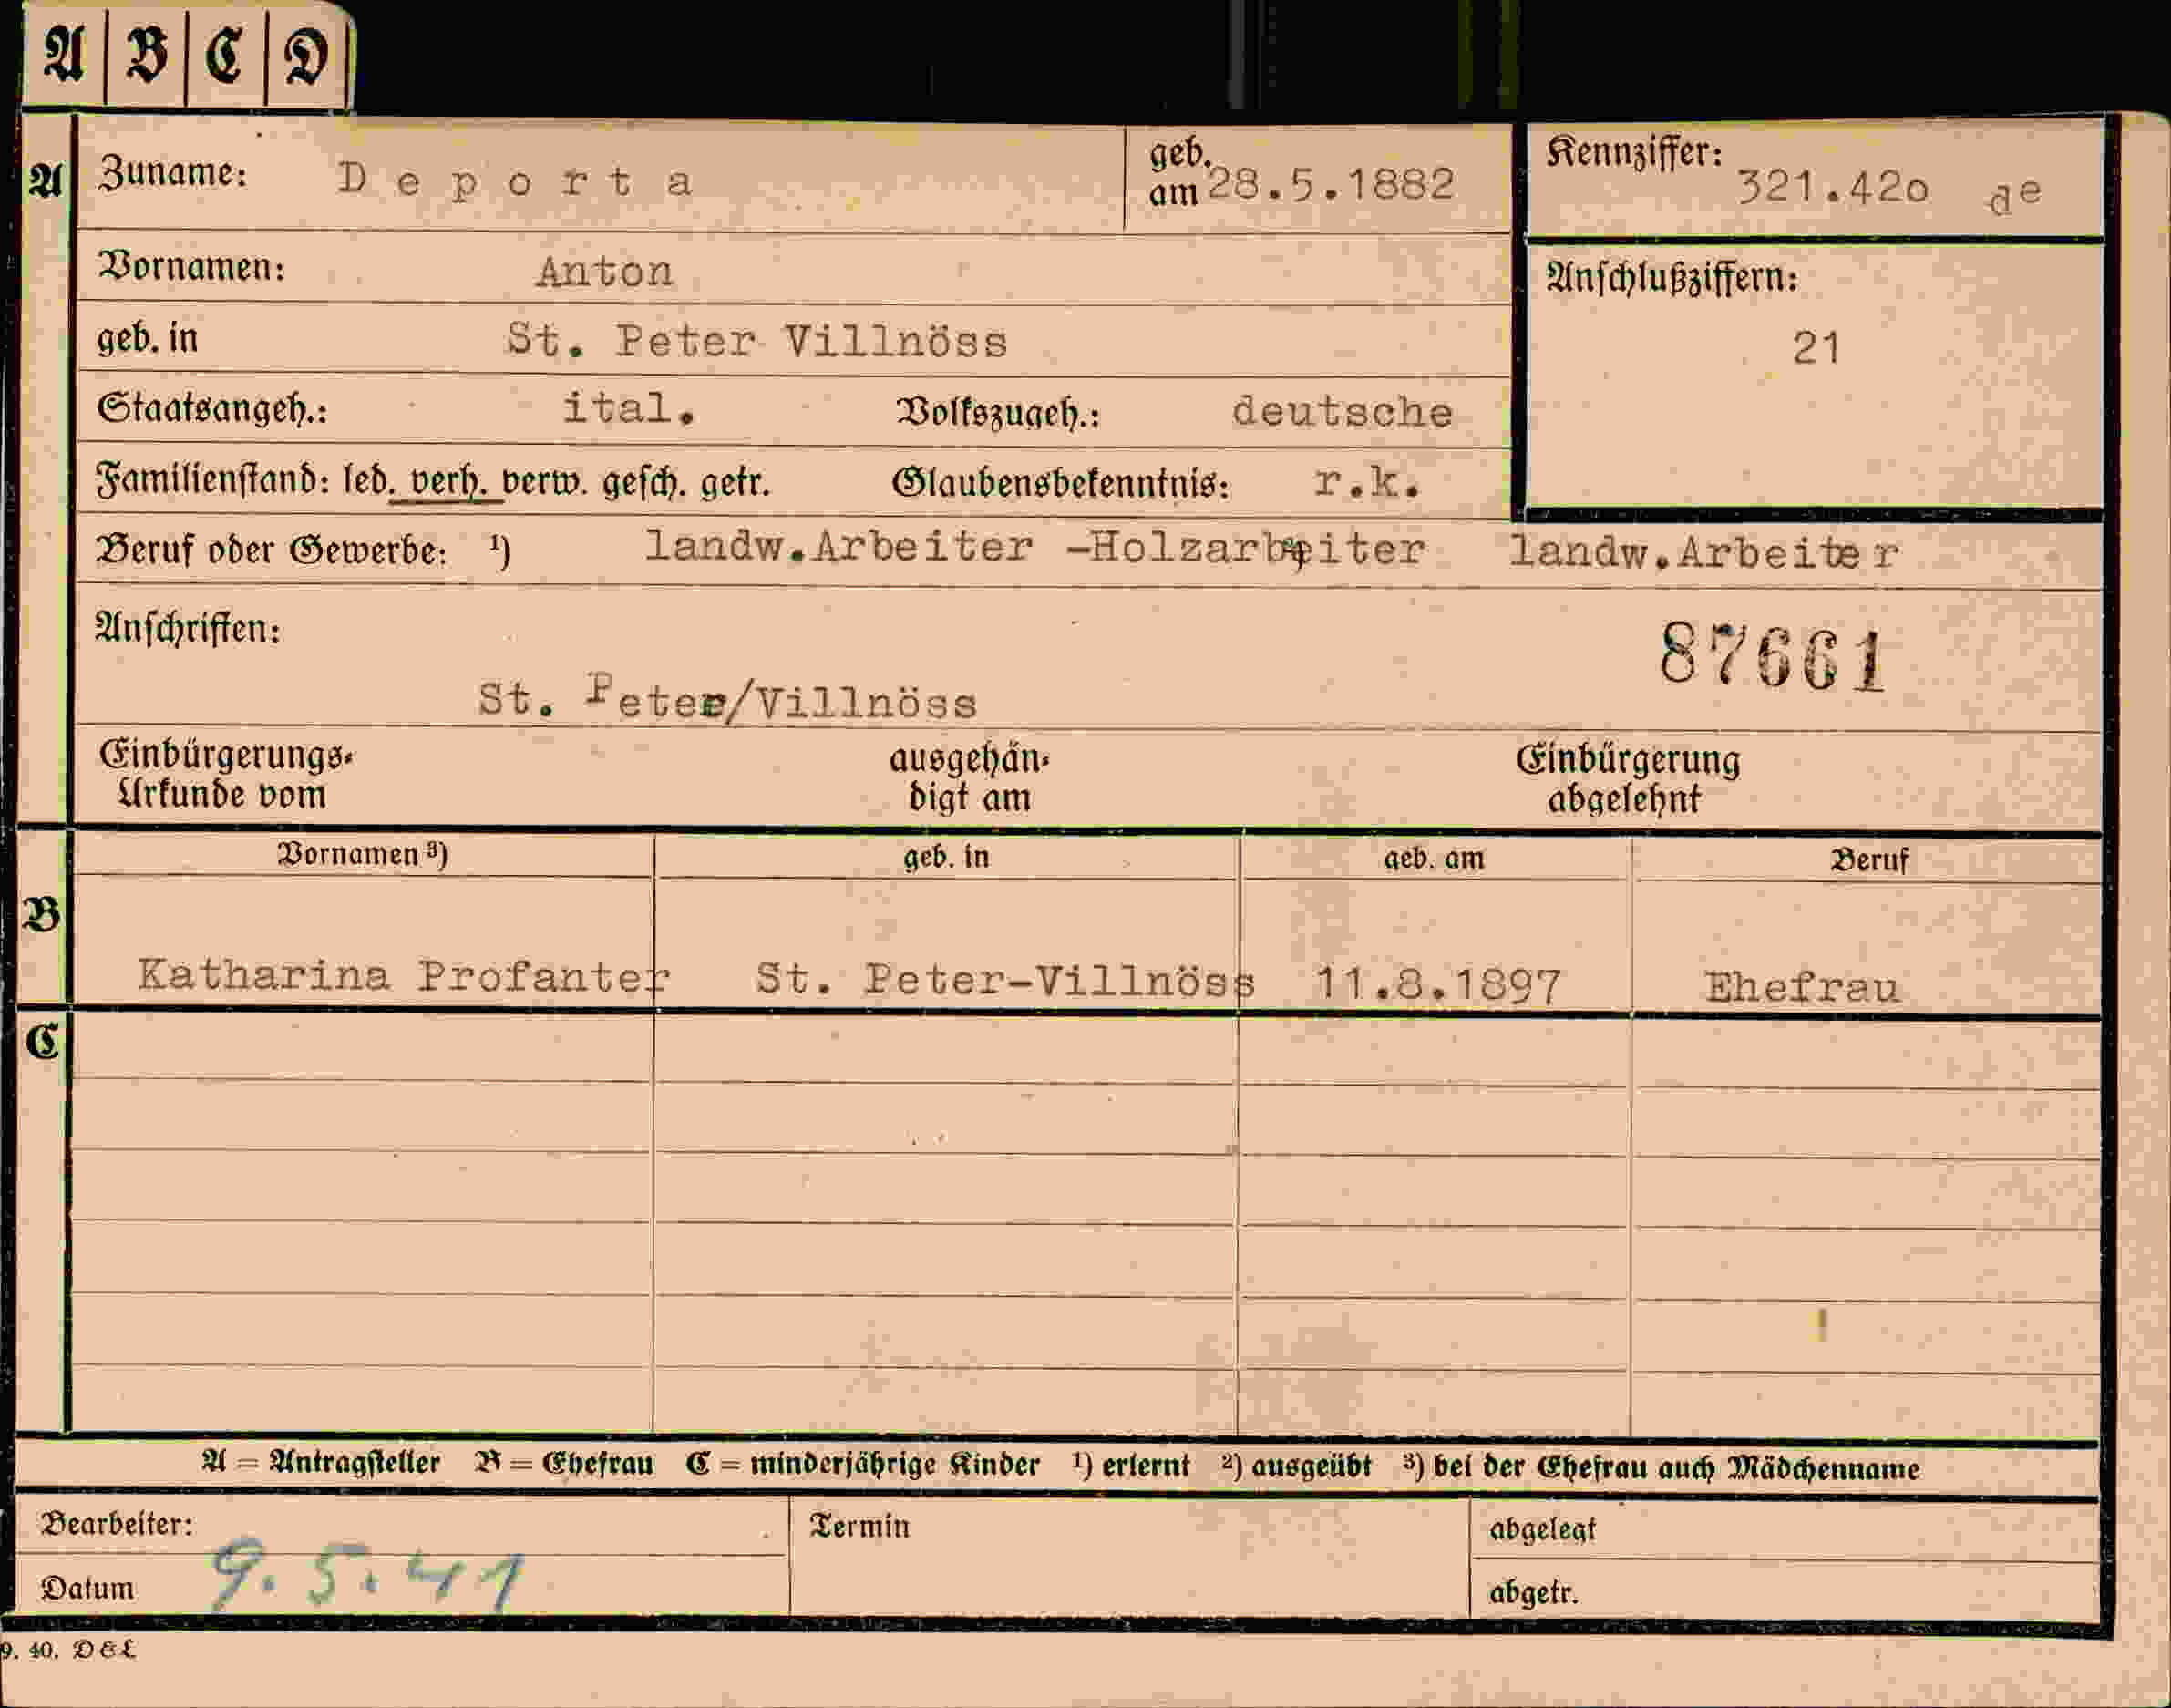 A B C D
A Zuname: Deporta geb. am 28.5.1882 Kennziffer: 321.42o de
Vornamen: Anton Anschlußziffern:
geb. in St. Peter Villnöss 21
Staatsangeh.: ital. Volkszugeh.: deutsche
Familienstand: led. verh. verw. gesch. getr. Glaubensbekenntnis: r.k.
Beruf oder Gewerbe: ¹) landw.Arbeiter -Holzarbeiter landw.Arbeiter
Anschriften: 87661
St. Peter/Villnöss
Einbürgerungs- ausgehän- Einbürgerung
Urkunde vom digt am abgelehnt
Vornamen ³) geb. in geb. am Beruf
B
Katharina Profanter St. Peter-Villnöss 11.8.1897 Ehefrau
C
A = Antragsteller B = Ehefrau C = minderjährige Kinder ¹) erlernt ²) ausgeübt ³) bei der Ehefrau auch Mädchenname
Bearbeiter: Termin abgelegt
Datum 9.5.41 abgetr.
9. 40. D&L